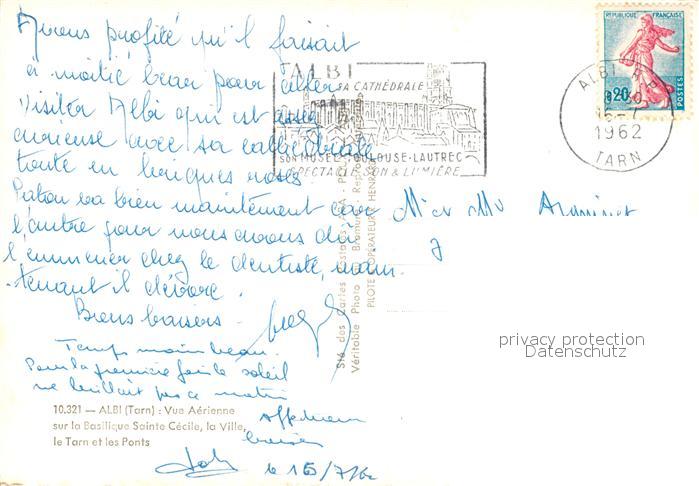 Avons profité qu'il faisait
à moitié beau pour aller
visiter Albi qui est assez
curieuse avec sa cathédrale
toute en briques roses
va bien maintenant car
l'autre jour nous avons dû
l'emmener chez le dentiste, main-
tenant il dévore.
Bons baisers
Temps moins beau.
Pour la première fois le soleil
ne brillait pas ce matin
Affectueux
baisers
le 15/7/62
10.321 — ALBI (Tarn) : Vue Aérienne
sur la Basilique Sainte Cécile, la Ville,
le Tarn et les Ponts
ALBI
SA CATHÉDRALE
SON MUSÉE TOULOUSE-LAUTREC
SPECTACLE SON & LUMIÈRE
Sté des Cartes Postales
Véritable Photo Bromure
PILOTE OPÉRATEUR : HENRI
REPUBLIQUE FRANÇAISE
0,20
POSTES
ALBI
16-7
1962
TARN
Mr et Mme
privacy protection
Datenschutz